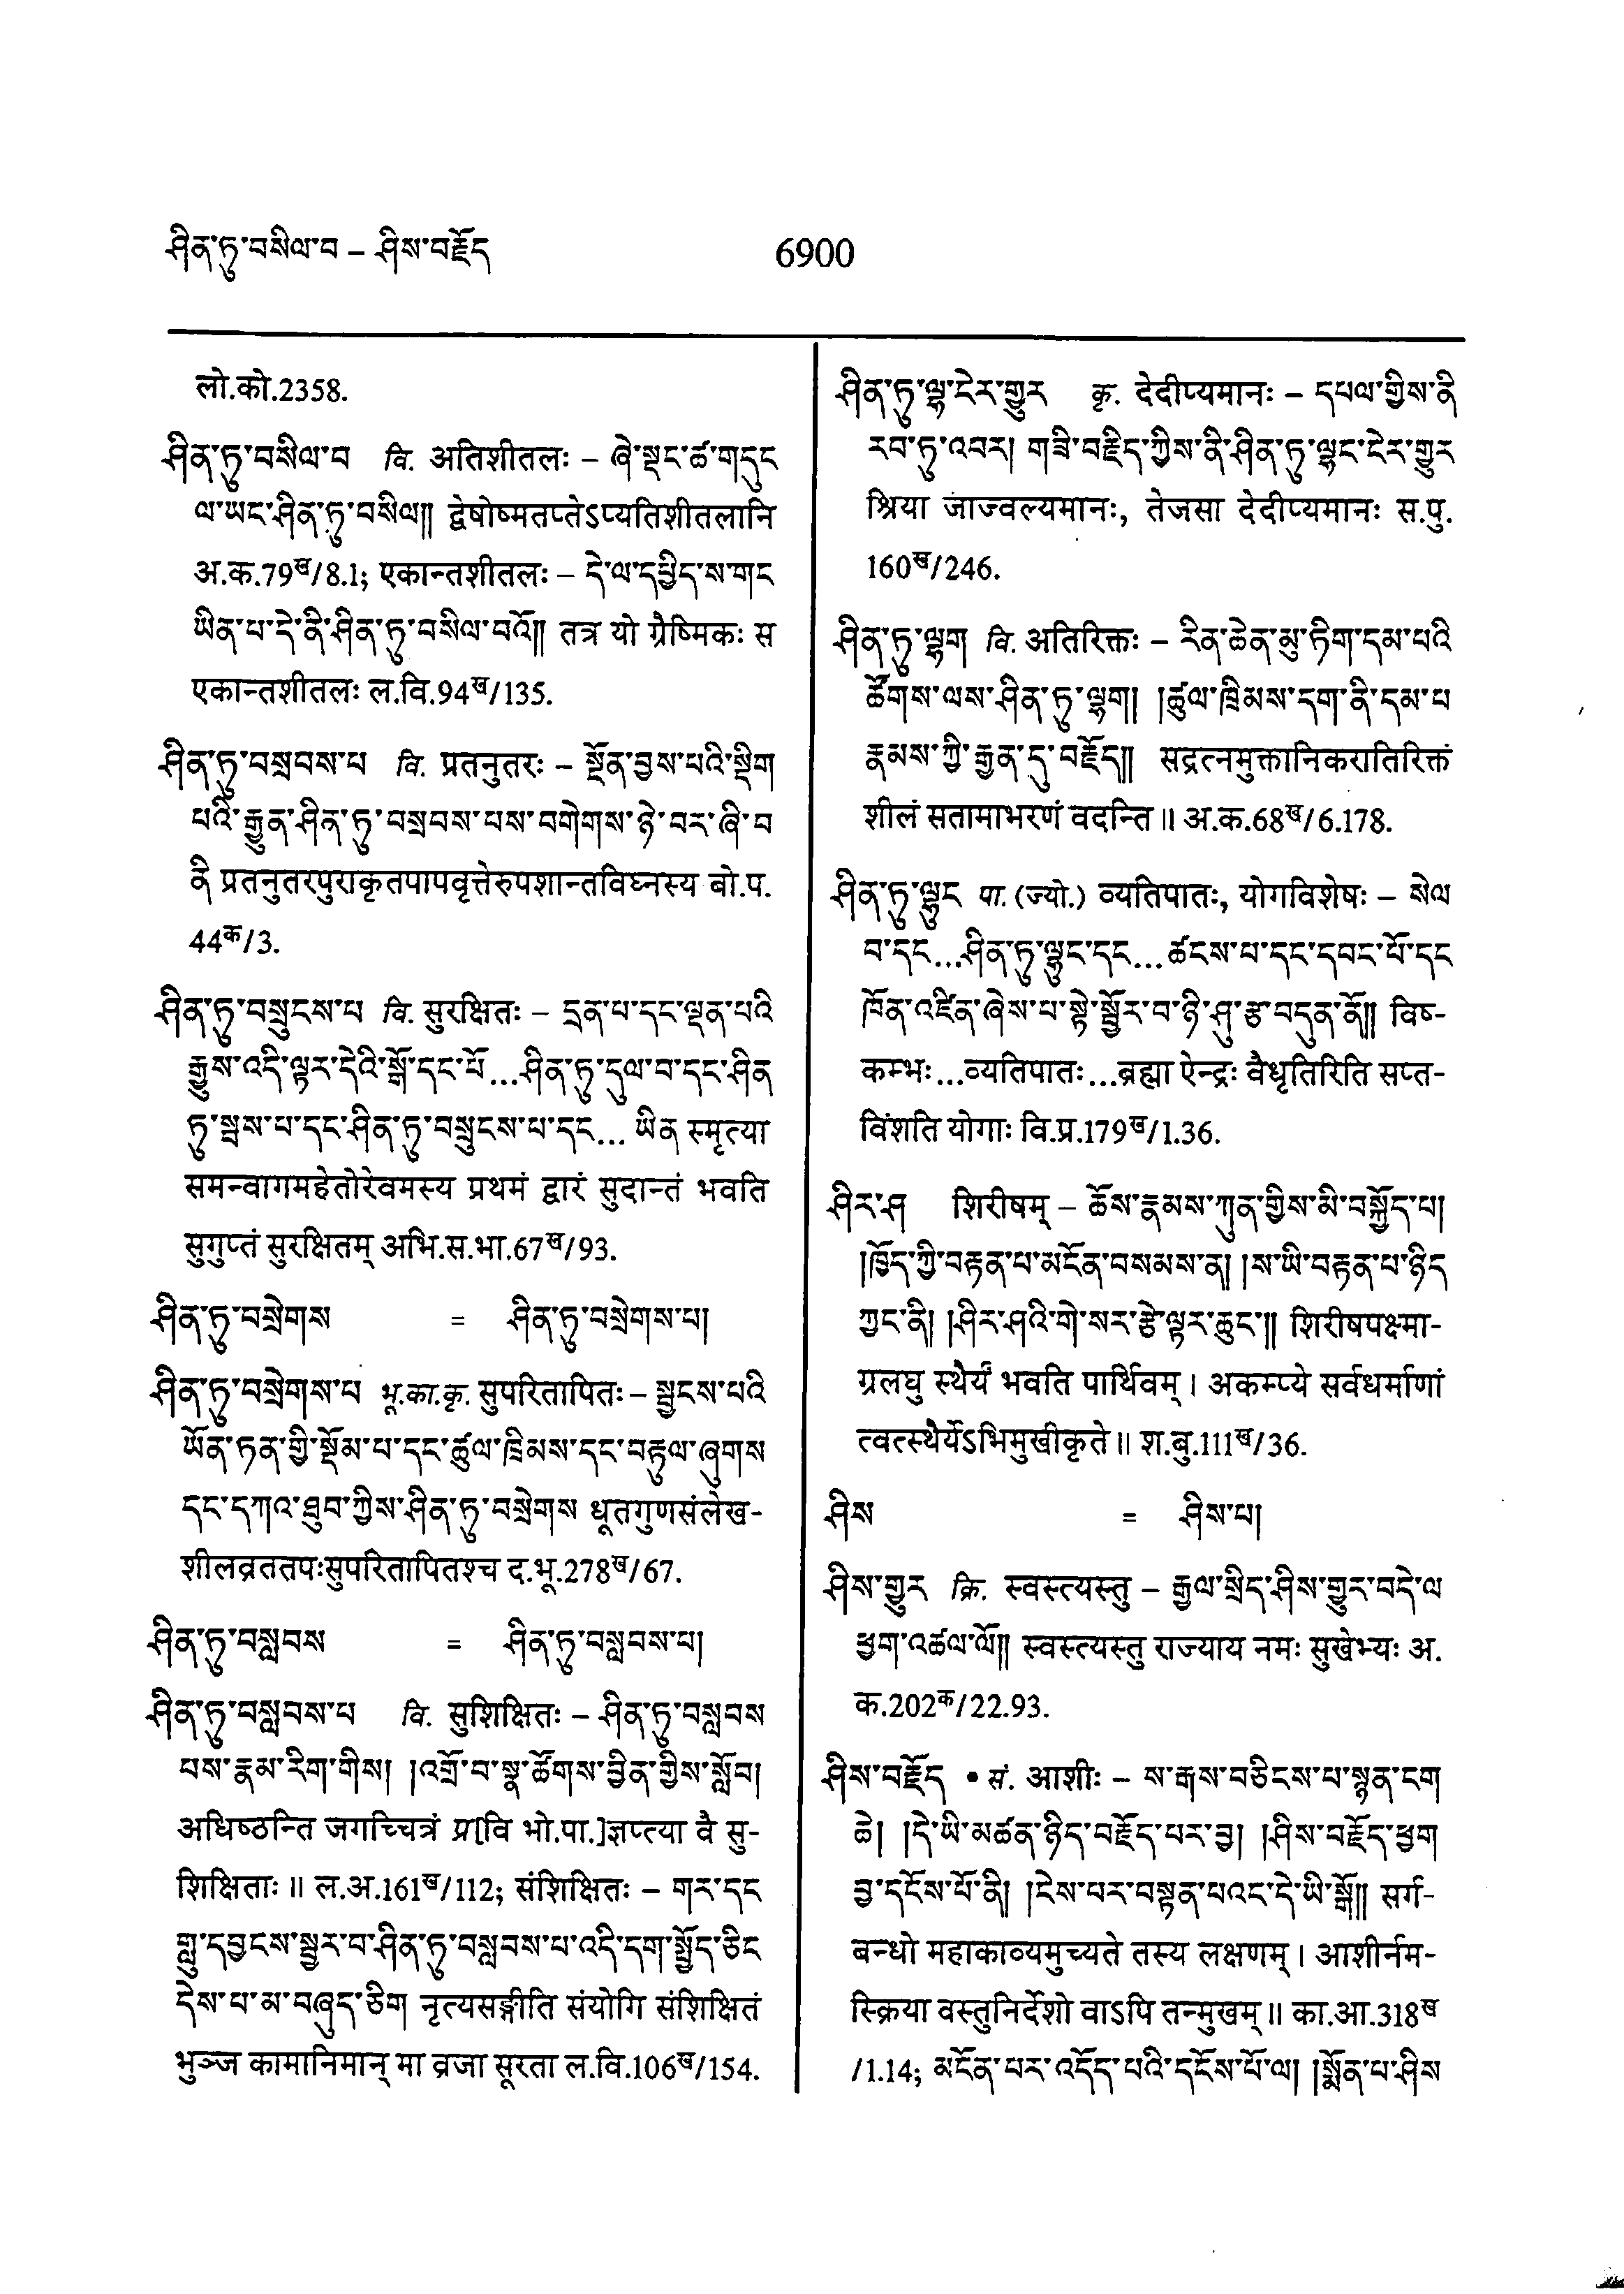 ཤིན་ཏུ་བསིལ་བ – ཤིས་བརྗོད
6900
लो.को.2358.
ཤིན་ཏུ་བསིལ་བ वि. अतिशीतलः – ཞེ་སྡང་ཚ་གདུང
ལ་ཡང་ཤིན་ཏུ་བསིལ།། द्वेषोष्मतप्तेऽप्यतिशीतलानि
अ.क.79ख/8.1; एकान्तशीतलः – དེ་ལ་དཔྱིད་ས་གང
ཡིན་པ་དེ་ནི་ཤིན་ཏུ་བསིལ་བའོ།། तत्र यो ग्रैष्मिकः स
एकान्तशीतलः ल.वि.94ख/135.
ཤིན་ཏུ་བསྲབས་པ वि. प्रतनुतरः – སྔོན་བྱས་པའི་སྡིག
པའི་རྒྱུན་ཤིན་ཏུ་བསྲབས་པས་བགེགས་ཉེ་བར་ཞི་བ
ནི प्रतनुतरपुराकृतपापवृत्तेरुपशान्तविघ्नस्य बो.प.
44क/3.
ཤིན་ཏུ་བསྲུངས་པ वि. सुरक्षितः – དྲན་པ་དང་ལྡན་པའི
རྒྱུས་འདི་ལྟར་དེའི་སྒོ་དང་པོ...ཤིན་ཏུ་དུལ་བ་དང་ཤིན
ཏུ་སྦས་པ་དང་ཤིན་ཏུ་བསྲུངས་པ་དང... ཡིན स्मृत्या
समन्वागमहेतोरेवमस्य प्रथमं द्वारं सुदान्तं भवति
सुगुप्तं सुरक्षितम् अभि.स.भा.67ख/93.
ཤིན་ཏུ་བསྲེགས = ཤིན་ཏུ་བསྲེགས་པ།
ཤིན་ཏུ་བསྲེགས་པ भू.का.कृ. सुपरितापितः – སྦྱངས་པའི
ཡོན་ཏན་གྱི་སྡོམ་པ་དང་ཚུལ་ཁྲིམས་དང་བརྟུལ་ཞུགས
དང་དཀའ་ཐུབ་ཀྱིས་ཤིན་ཏུ་བསྲེགས धूतगुणसंलेख-
शीलव्रततपःसुपरितापितश्च द.भू.278ख/67.
ཤིན་ཏུ་བསླབས = ཤིན་ཏུ་བསླབས་པ།
ཤིན་ཏུ་བསླབས་པ वि. सुशिक्षितः – ཤིན་ཏུ་བསླབས
པས་རྣམ་རིག་གིས། །འགྲོ་བ་སྣ་ཚོགས་བྱིན་གྱིས་སློབ།
अधिष्ठन्ति जगच्चित्रं प्र[वि भो.पा.]ज्ञप्त्या वै सु-
शिक्षिताः॥ ल.अ.161ख/112; संशिक्षितः – གར་དང
གླུ་དབྱངས་སྦྱར་བ་ཤིན་ཏུ་བསླབས་པ་འདི་དག་སྤྱོད་ཅིང
དེས་པ་མ་བཞུད་ཅིག नृत्यसङ्गीति संयोगि संशिक्षितं
भुञ्ज कामानिमान् मा व्रजा सूरता ल.वि.106ख/154.
ཤིན་ཏུ་ལྷ་ངེར་གྱུར कृ. देदीप्यमानः – དཔལ་གྱིས་ནི
རབ་ཏུ་འབར། གཟི་བརྗིད་ཀྱིས་ནི་ཤིན་ཏུ་ལྷང་ངེར་གྱུར
श्रिया जाज्वल्यमानः, तेजसा देदीप्यमानः स.पु.
160ख/246.
ཤིན་ཏུ་ལྷག वि. अतिरिक्तः – རིན་ཆེན་མུ་ཏིག་དམ་པའི
ཚོགས་ལས་ཤིན་ཏུ་ལྷག། །ཚུལ་ཁྲིམས་དག་ནི་དམ་པ
རྣམས་ཀྱི་རྒྱན་དུ་བརྗོད།། सद्रत्नमुक्तानिकरातिरिक्तं
शीलं सतामाभरणं वदन्ति॥ अ.क.68ख/6.178.
ཤིན་ཏུ་ལྷུང पा. (ज्यो.) व्यतिपातः, योगविशेषः – སེལ
བ་དང...ཤིན་ཏུ་ལྷུང་དང...ཚངས་པ་དང་དབང་པོ་དང
ཁོན་འཛིན་ཞེས་པ་སྟེ་སྦྱོར་བ་ཉི་ཤུ་རྩ་བདུན་ནོ།། विष-
कम्भः...व्यतिपातः...ब्रह्मा ऐन्द्रः वैधृतिरिति सप्त-
विंशति योगाः वि.प्र.179ख/1.36.
ཤིར་ཤ शिरीषम् – ཆོས་རྣམས་ཀུན་གྱིས་མི་བསྐྱོད་པ།
།ཁྱོད་ཀྱི་བརྟན་པ་མངོན་བསམས་ན། །ས་ཡི་བརྟན་པ་ཉིད
ཀྱང་ནི། །ཤིར་ཤའི་གེ་སར་རྩེ་ལྟར་ཆུང་།། शिरीषपक्ष्मा-
ग्रलघु स्थैर्यं भवति पार्थिवम्। अकम्प्ये सर्वधर्माणां
त्वत्स्थैर्येऽभिमुखीकृते॥ श.बु.111ख/36.
ཤིས = ཤིས་པ།
ཤིས་གྱུར क्रि. स्वस्त्यस्तु – རྒྱལ་སྲིད་ཤིས་གྱུར་བདེ་ལ
ཕྱག་འཚལ་ལོ།། स्वस्त्यस्तु राज्याय नमः सुखेभ्यः अ.
क.202क/22.93.
ཤིས་བརྗོད • सं. आशीः – ས་རྒས་བཅིངས་པ་སྙན་ངག
ཆེ། །དེ་ཡི་མཚན་ཉིད་བརྗོད་པར་བྱ། །ཤིས་བརྗོད་ཕྱག
བྱ་དངོས་པོ་ནི། །ངེས་པར་བསྟན་པའང་དེ་ཡི་སྒོ།། सर्ग-
बन्धो महाकाव्यमुच्यते तस्य लक्षणम्। आशीर्नम-
स्क्रिया वस्तुनिर्देशो वाऽपि तन्मुखम्॥ का.आ.318ख
/1.14; མངོན་པར་འདོད་པའི་དངོས་པོ་ལ། །སྨོན་པ་ཤིས